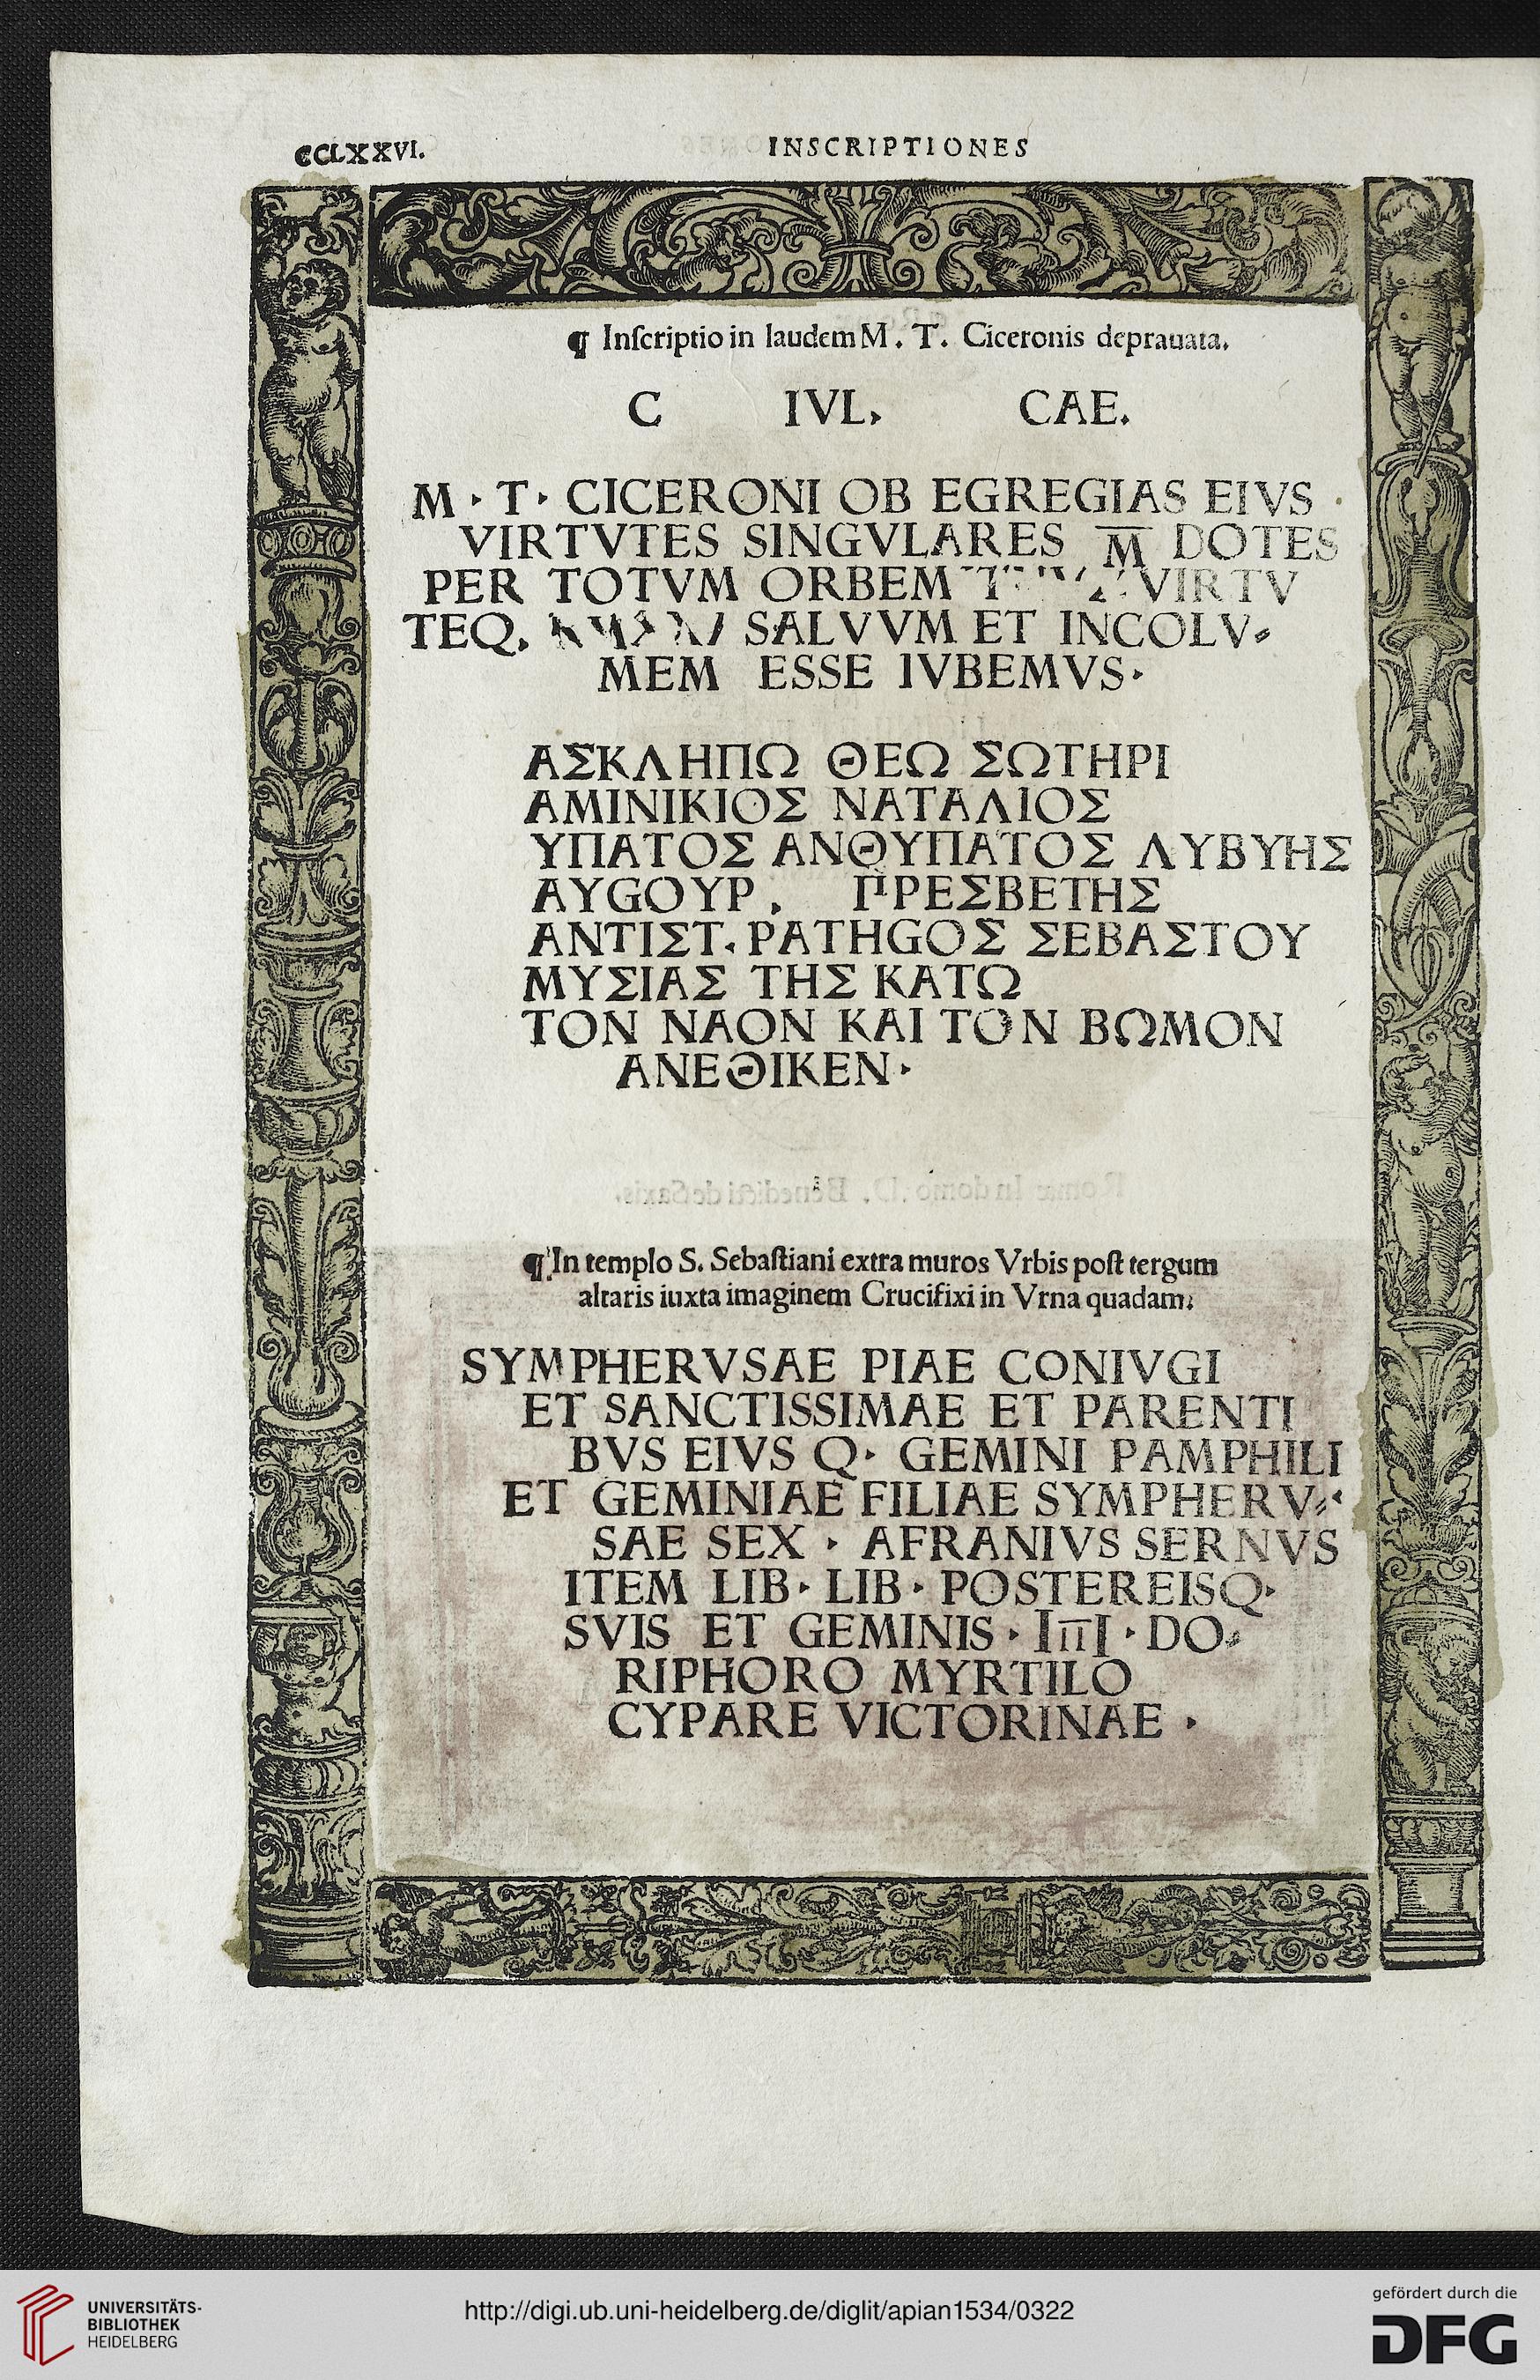 CCLXXVI.
INSCRIPTIONES
¶ Inſcriptio in laudem M. T. Ciceronis deprauata.
C IVL. CAE.
M · T · CICERONI OB EGREGIAS EIVS ·
VIRTVTES SINGVLARES M̅ DOTES
PER TOTVM ORBEM VIRTV
TEQ. SALVVM ET INCOLV⸗
MEM ESSE IVBEMVS·
ΑΣΚΛΗΠΩ ΘΕΩ ΣΩΤΗΡΙ
ΑΜΙΝΙΚΙΟΣ ΝΑΤΑΛΙΟΣ
ΥΠΑΤΟΣ ΑΝΘΥΠΑΤΟΣ ΛΥΒΥΗΣ
ΑΥGΟΥΡ. ΠΡΕΣΒΕΤΗΣ
ΑΝΤΙΣΤ. ΡΑΤΗGΟΣ ΣΕΒΑΣΤΟΥ
ΜΥΣΙΑΣ ΤΗΣ ΚΑΤΩ
ΤΟΝ ΝΑΟΝ ΚΑΙ ΤΟΝ ΒΩΜΟΝ
ΑΝΕΘΙΚΕΝ·
¶ In templo S. Sebaſtiani extra muros Vrbis poſt tergum
altaris iuxta imaginem Crucifixi in Vrna quadam.
SYMPHERVSAE PIAE CONIVGI
ET SANCTISSIMAE ET PARENTI
BVS EIVS Q· GEMINI PAMPHILI
ET GEMINIAE FILIAE SYMPHERV⸗
SAE SEX · AFRANIVS SERNVS
ITEM LIB· LIB· POSTEREISQ·
SVIS ET GEMINIS · IIII · DO⸗
RIPHORO MYRTILO
CYPARE VICTORINAE ·
UNIVERSITÄTS-
BIBLIOTHEK
HEIDELBERG
http://digi.ub.uni-heidelberg.de/diglit/apian1534/0322
gefördert durch die
DFG